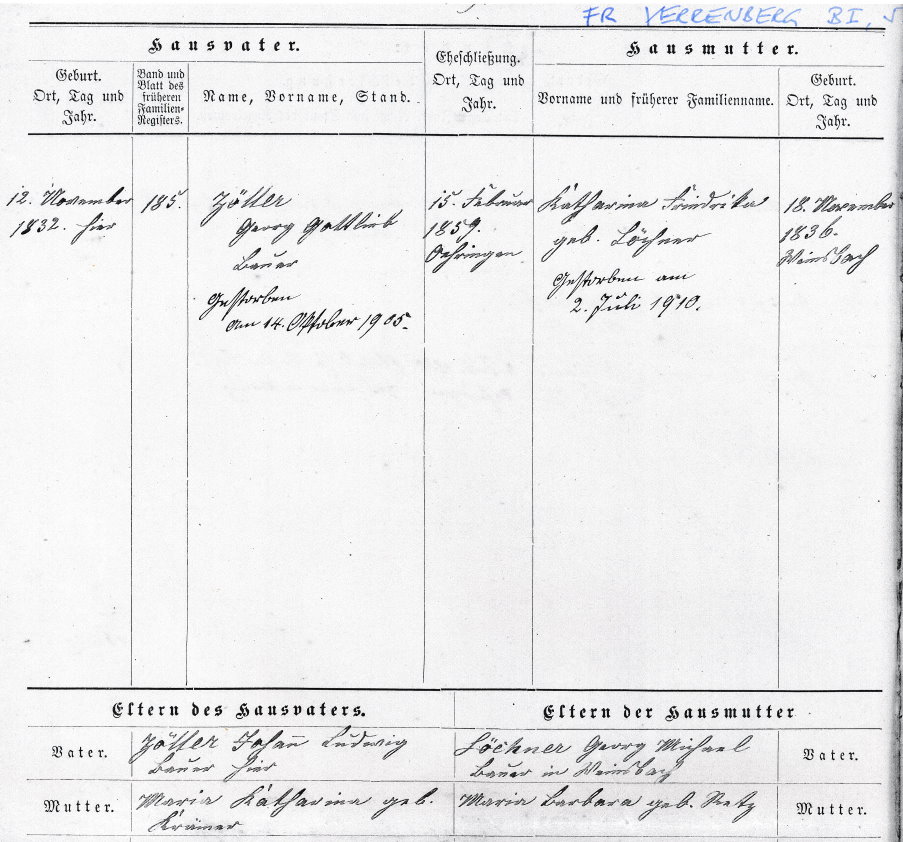 FR VERRENBERG BI, 5
Hausvater.
Hausmutter.
Geburt.
Ort, Tag und
Jahr.
Band und
Blatt des
früheren
Familien-
Registers.
Name, Vorname, Stand.
Eheschließung.
Ort, Tag und
Jahr.
Vorname und früherer Familienname.
Geburt.
Ort, Tag und
Jahr.
12. November
1832. hier
185.
Zöller
Georg Gottlieb
Bauer
Gestorben
am 14. Oktober 1905.
15. Februar
1859.
Oehringen
Katharina Friedrika
geb. Löchner
Gestorben am
2. Juli 1910.
18. November
1836.
Weinsbach
Eltern des Hausvaters.
Eltern der Hausmutter
Vater.
Zöller Johann Ludwig
Bauer hier
Löchner Georg Michael
Bauer in Weinsbach
Vater.
Mutter.
Maria Katharina geb.
Krämer
Maria Barbara geb.
Mutter.